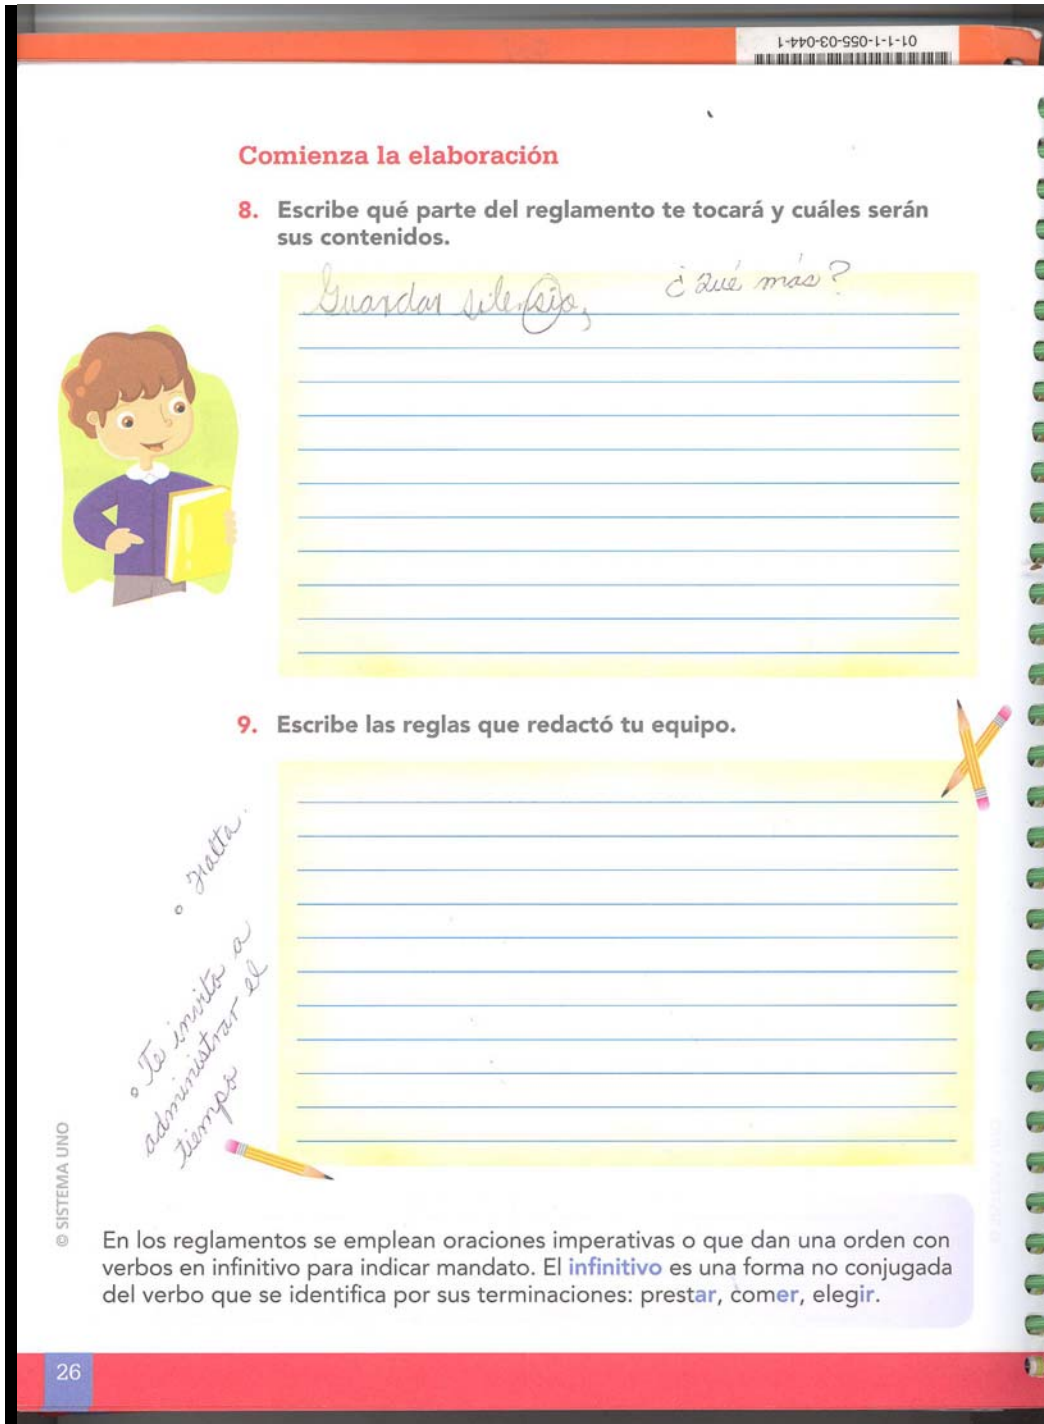 01-1-1-055-03-044-1
Comienza la elaboración
8. Escribe qué parte del reglamento te tocará y cuáles serán
sus contenidos.
Guardar silensio,
¿Qué más?
9. Escribe las reglas que redactó tu equipo.
° Falta.
° Te invito a
administrar el
tiempo
© SISTEMA UNO
En los reglamentos se emplean oraciones imperativas o que dan una orden con
verbos en infinitivo para indicar mandato. El infinitivo es una forma no conjugada
del verbo que se identifica por sus terminaciones: prestar, comer, elegir.
26